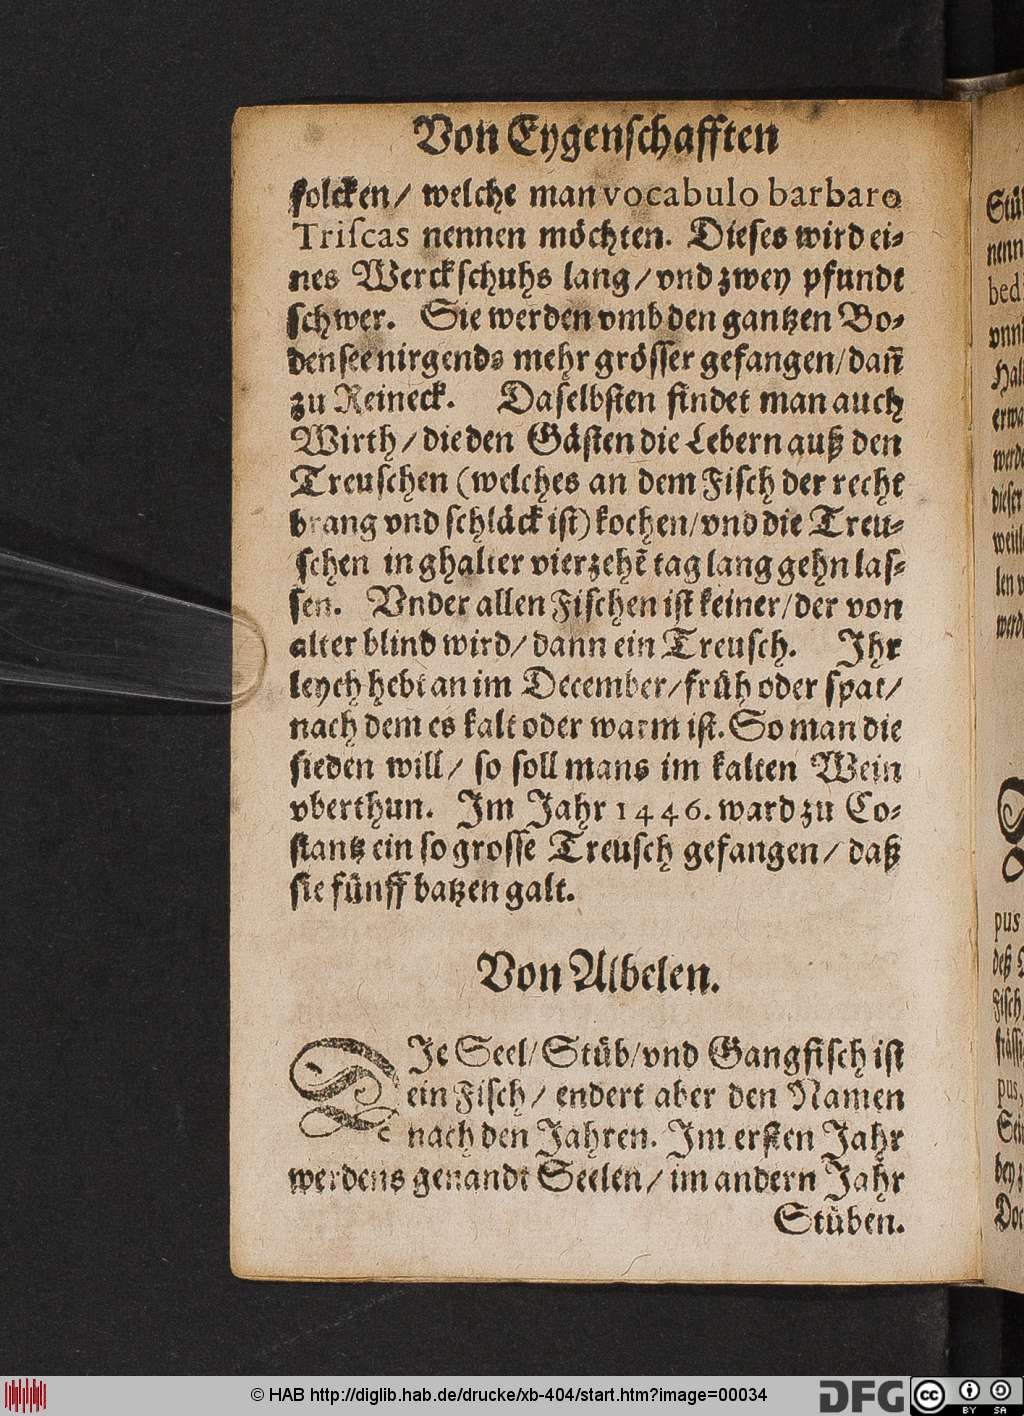 Von Eygenschafften
folcken/ welche man vocabulo barbaro
Triſcas nennen möchten. Dieses wird ei-
nes Werckſchuhs lang/ vnd zwey pfundt
schwer. Sie werden vmb den gantzen Bo-
densee nirgends mehr grösser gefangen/ dañ
zu Reineck. Daselbſten findet man auch
Wirth/ die den Gäſten die Lebern auß den
Treuſchen (welches an dem Fiſch der recht
brang vnd ſchläck iſt) kochen/ vnd die Treu-
ſchen in ghalter vierzehẽ tag lang gehn laſ-
ſen. Vnder allen Fiſchen iſt keiner/ der von
alter blind wird/ dann ein Treuſch. Ihr
leych hebt an im December/ früh oder ſpat/
nach dem es kalt oder warm iſt. So man die
ſieden will/ ſo ſoll mans im kalten Wein
vberthun. Im Jahr 1446. ward zu Co-
ſtantz ein ſo groſſe Treuſch gefangen/ daß
ſie fünff batzen galt.
Von Albelen.
DIe Seel/ Stüb/ vnd Gangfiſch iſt
ein Fiſch/ endert aber den Namen
nach den Jahren. Im erſten Jahr
werdens genandt Seelen/ im andern Jahr
Stüben.
© HAB http://diglib.hab.de/drucke/xb-404/start.htm?image=00034
DFG
cc BY SA